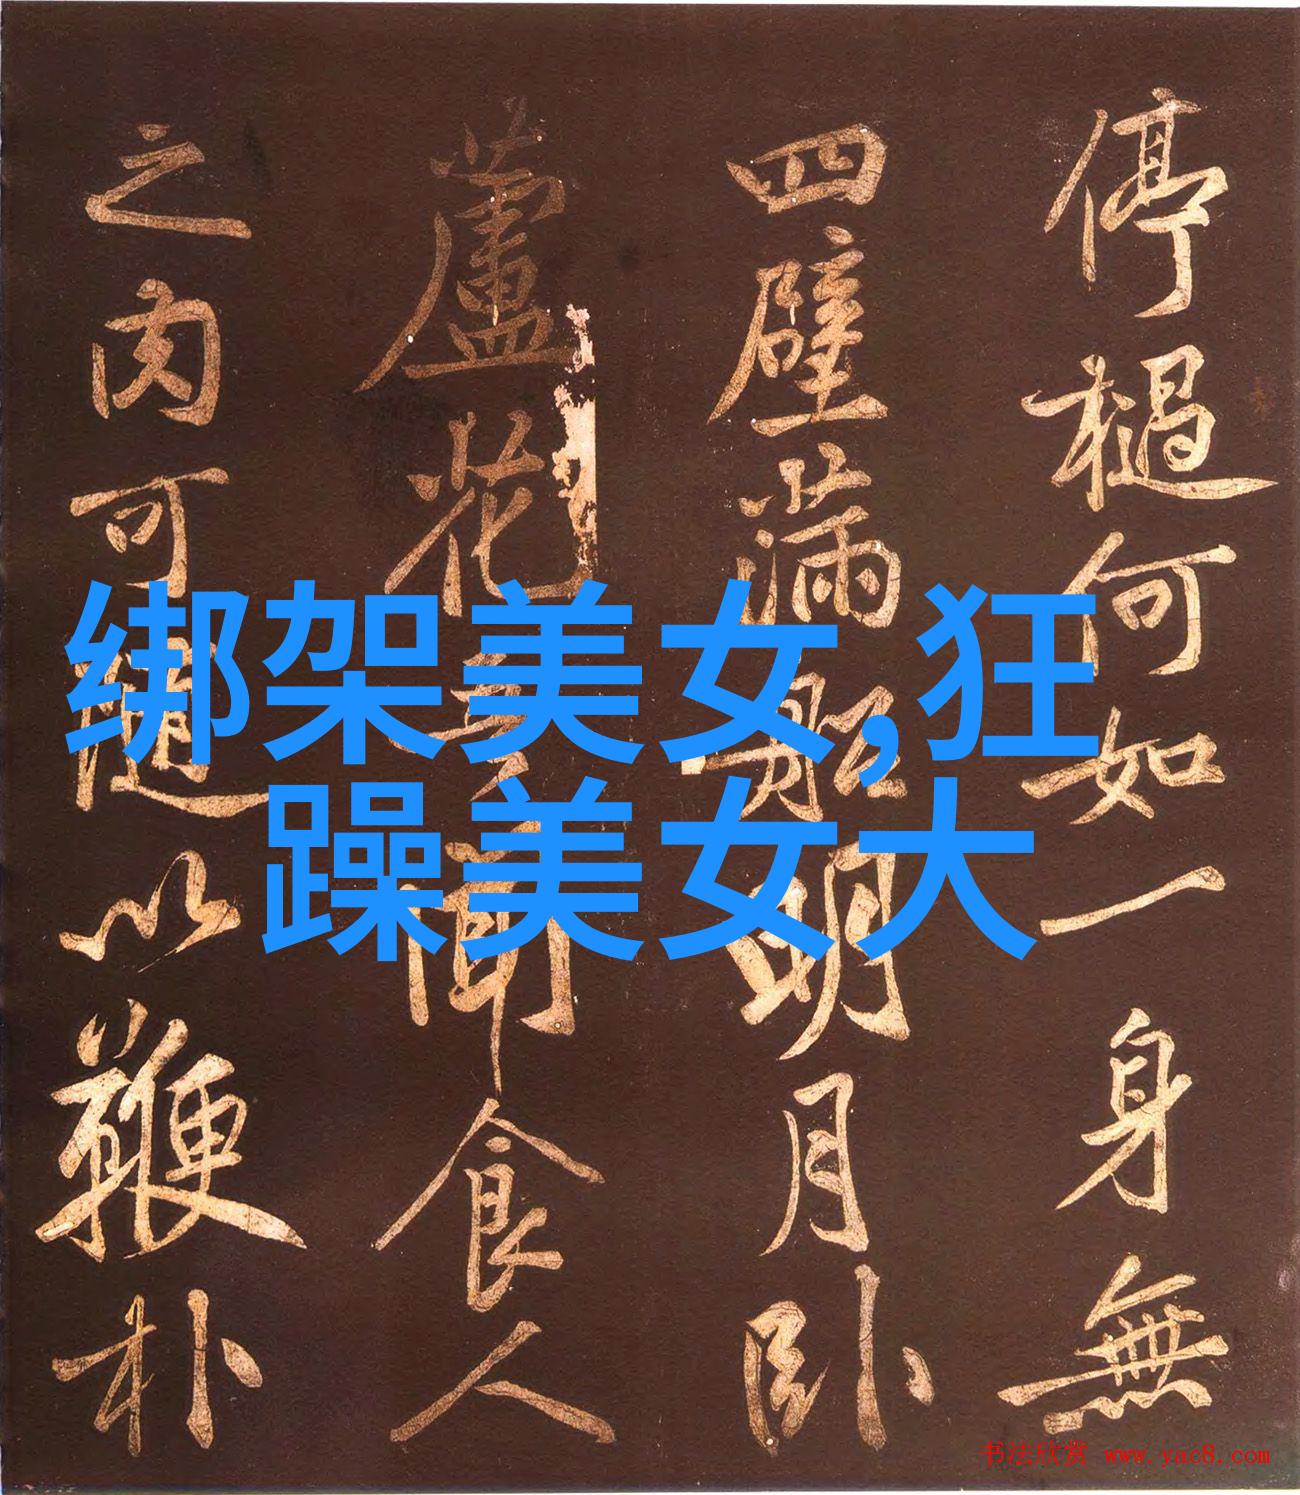 停檛何如一身無
四壁滿船明月卧
蘆花吾聞食人
之肉可隨以鞭朴
绑架美女,狂
躁美女大
书法欣赏 www.yac8.com